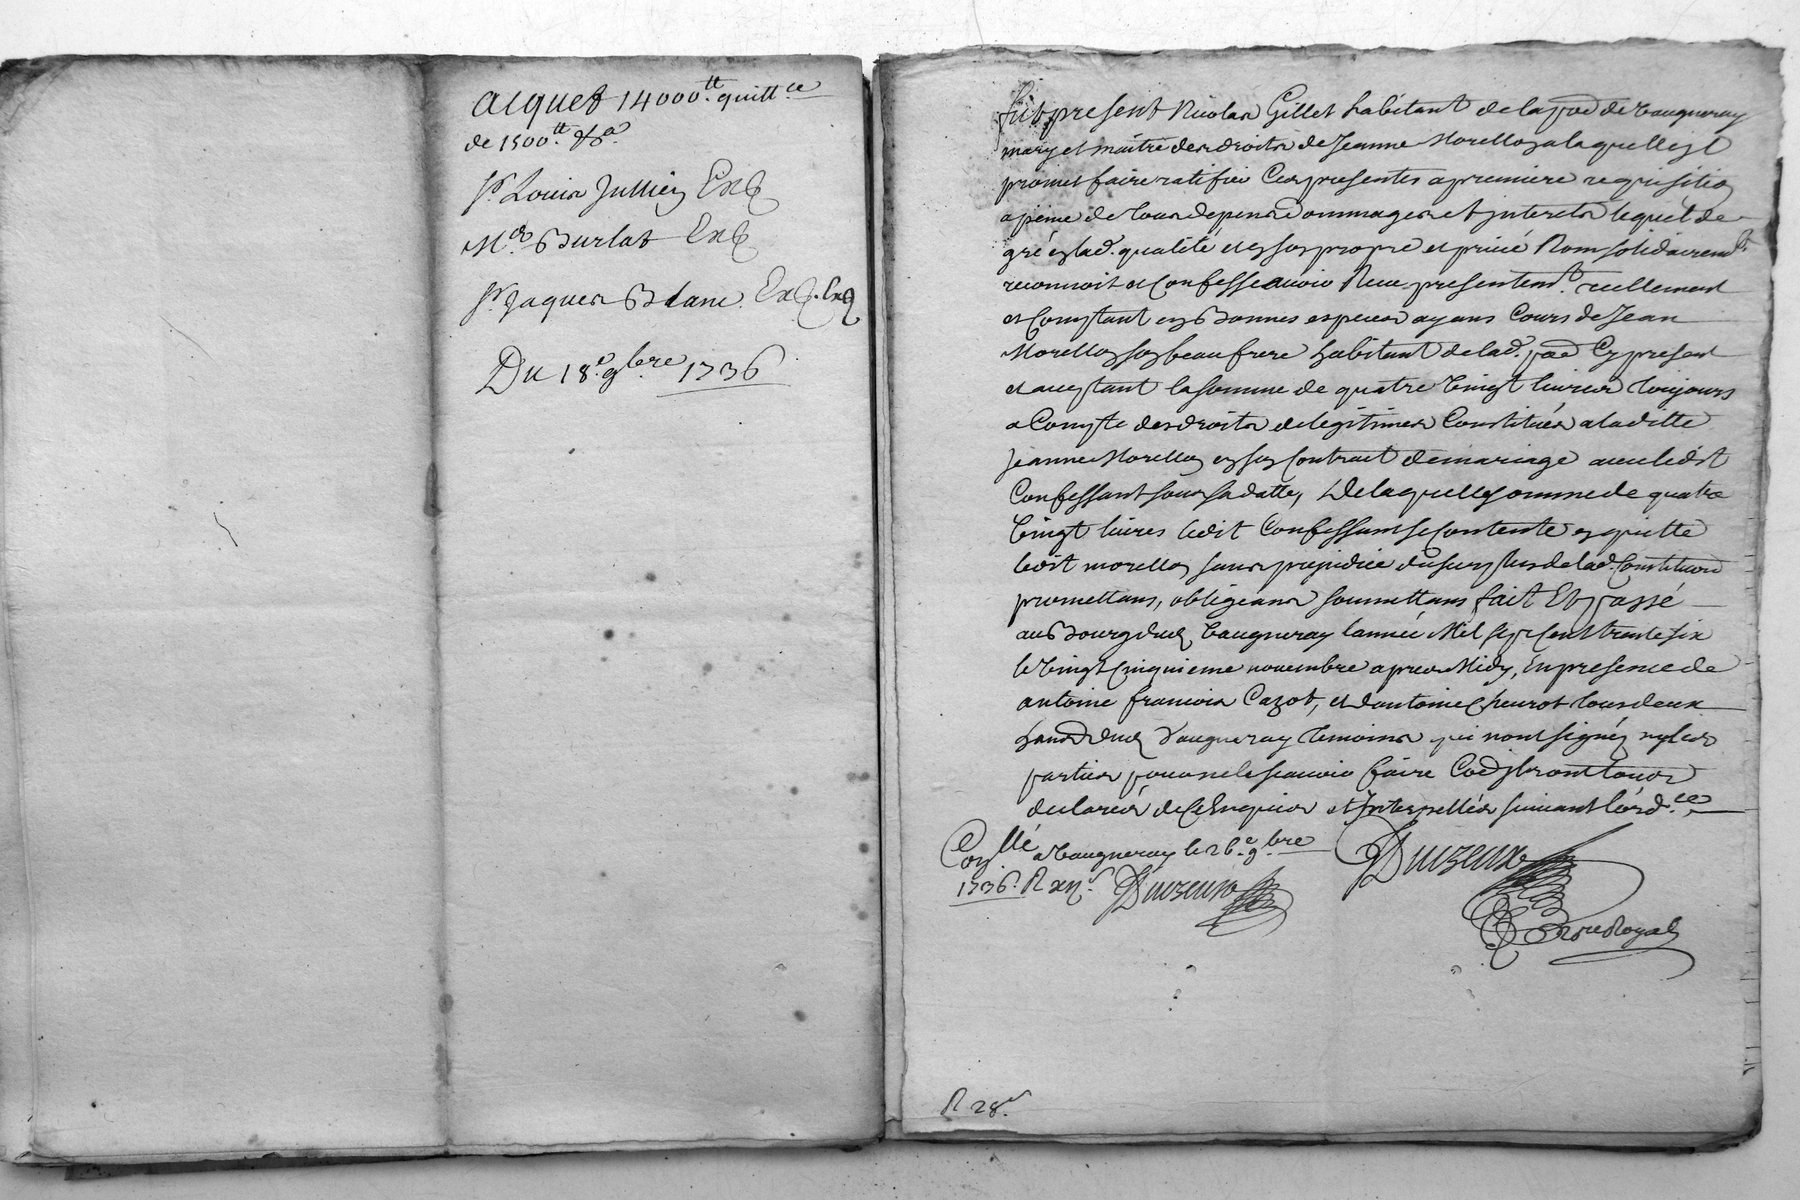 acquet 14000.tt quitt.ce
de 1500.tt &.a
Sr. Louis Jullien Exp
M.e Burlat Exp
Sr. Jaques Blanc Exp.
Du 18.e 9.bre 1736
fut present Nicolas Gillet habitant de la psse de Vaugneray
mary et maitre des droits de Jeanne Morellon a laquelle il
promet faire ratifier Ces presentes a premiere requisition
a peine de tous depens Dommages et interets lequel de
gré en lad. qualité et en son propre et privé Nom solidairemt.
reconnoit et Confesse avoir Receu presentemt. reellement
et Comptant en Bonnes especes ayans Cours de Jean
Morellon son beaufrere habitant de lad. psse Cy present
et acceptant la somme de quatre Vingt livres toujours
a Compte des droits de legitimes Constitués a laditte
Jeanne Morellon en son Contract de mariage avec ledit
Confessant sous sa datte, De laquelle somme de quatre
Vingt livres ledit Confessant se Contente en quitte
ledit morellon sans prejudice du surplus de lad. Constitution
promettans, obligeans soumettans fait Et passé
au Bourg dud. Vaugneray l'année Mil sept Cent trente six
le Vingt Cinquieme novembre apres Midy, En presence de
antoine francois Cazot, et d'antoine Cheurot tous deux
habs. dud. Vaugneray temoins qui n'ont signéz ny les
parties pour ne le scavoir faire Coe. ils ont tous
declarés de Ce Enquis et Interpellés suivant l'ord.ce
Con.llé a Vaugneray le 26.e 9.bre
1736. R xii s. Duvzeux
Duvzeux
Nore Royal
R 28 s.